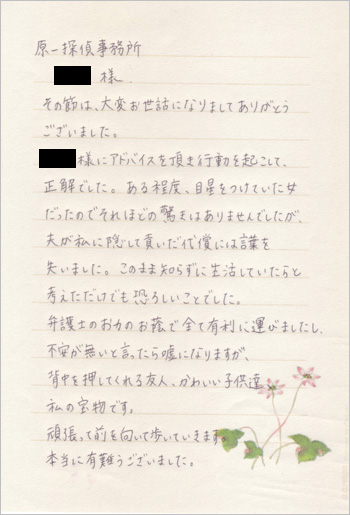 原一探偵事務所
様.
その節は、大変お世話になりましてありがとう
ございました。
様にアドバイスを頂き行動を起こして、
正解でした。ある程度、目星をつけていた女
だったのでそれほどの驚きはありませんでしたが、
夫が私に隠して貢いだ代償には言葉を
失いました。このまま知らずに生活していたらと
考えただけでも恐ろしいことでした。
弁護士のお力のお蔭で全て有利に運びましたし、
不安が無いと言ったら嘘になりますが、
背中を押してくれる友人、かわいい子供達、
私の宝物です。
頑張って前を向いて歩いていきます
本当に有難うございました。